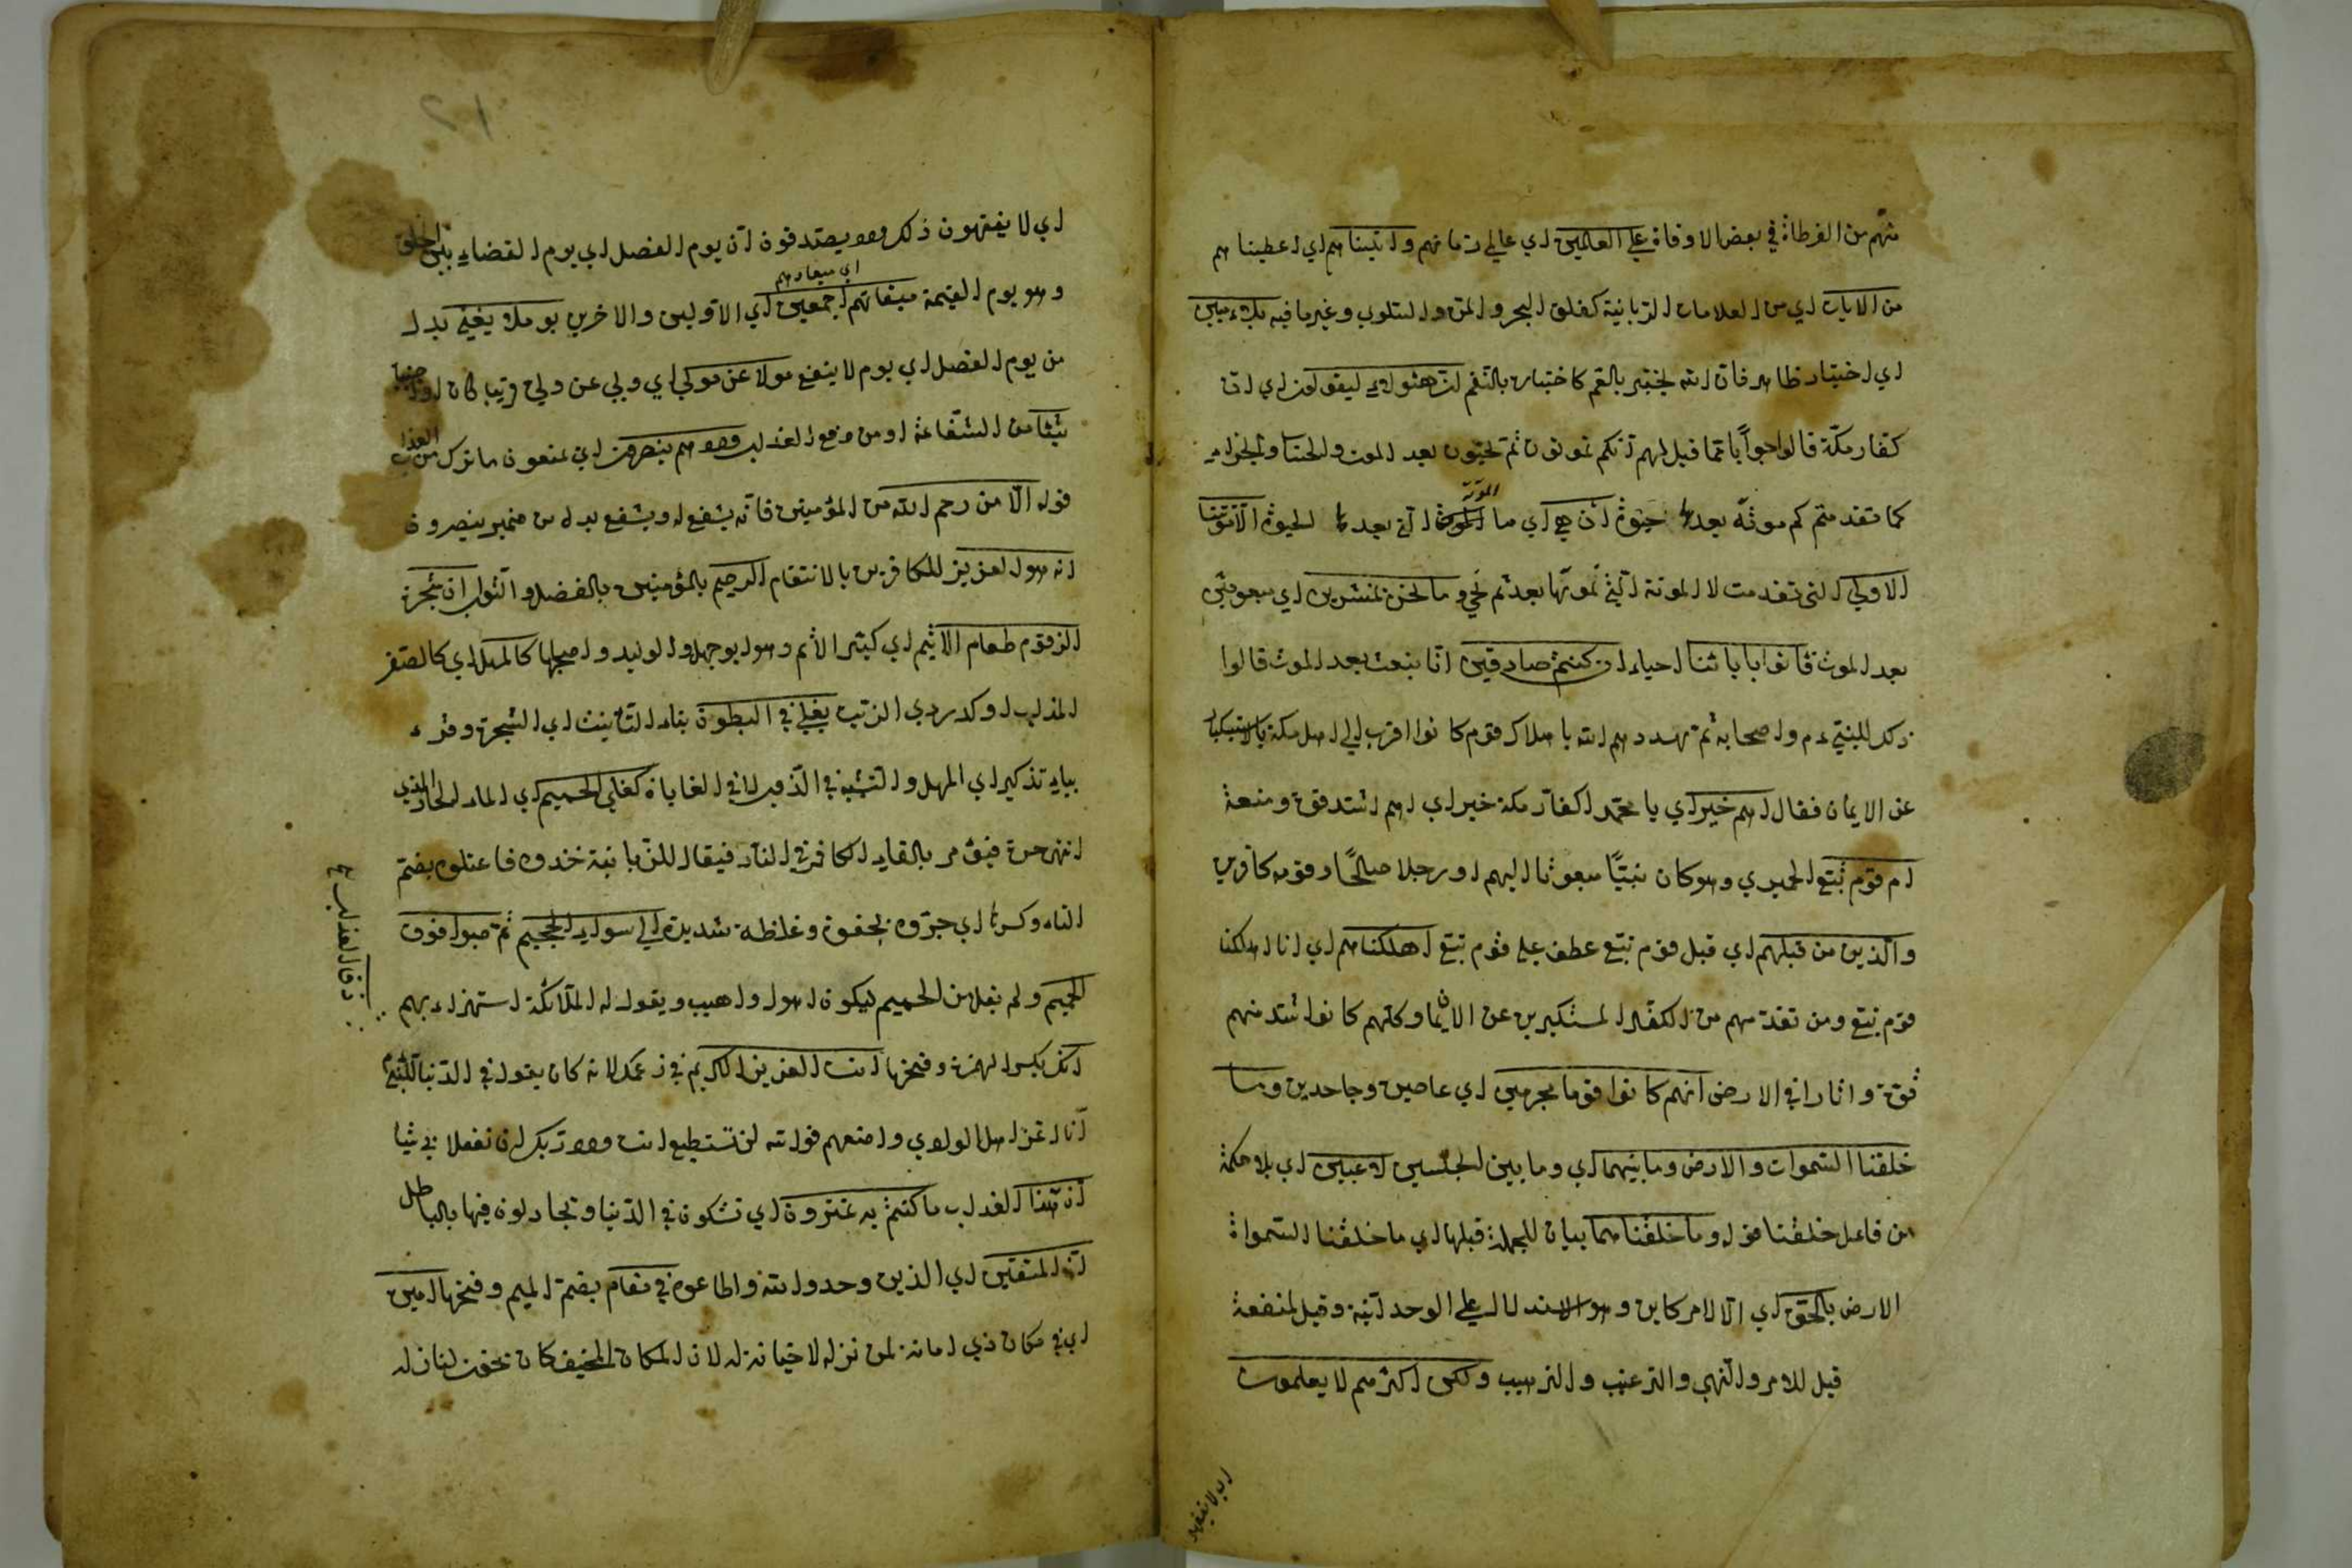 منهم من الفرطاة في بعض الاوقاة على العالمين اي عالمي زمانهم واتيناهم اي اعطيناهم
من الايات اي من العلامات الربانية كفلق البحر والمن والسلوى وغيرها فيه بلاء مبين
اي اختبار ظاهر فان الله يختبر بالنعم كاختباره بالنقم ان هؤلاء ليقولون اي ان
كفار مكة قالوا جوابا مما قيل لهم انكم تموتون ثم تحيون بعد الموت والحساب والجزاء
كما تقدمتم كم موتة بعدها حيوة ان هي اي ما الموتة التي بعدها الحيوة الا موتتنا
الاولى التي تقدمت لا الموتة التي نموتها بعد ثم نحيي وما نحن بمنشرين اي مبعوثين
بعد الموت فاتوا بابائنا احياء ان كنتم صادقين انا نبعث بعد الموت قالوا
ذلك للنبي عم واصحابه ثم هددهم الله باهلاك قوم كانوا اقرب الى اهل مكة بالاستكبار
عن الايمان فقال اهم خير اي يا محمد اكفار مكة خير اي اهم اشد قوة ومنعة
ام قوم تبع الحميري وهو كان نبيا مبعوثا اليهم او رجلا صالحا وقومه كافرين
والذين من قبلهم اي قبل قوم تبع عطف على قوم تبع اهلكناهم اي انا اهلكنا
قوم تبع ومن تقدمهم من الكفار المستكبرين عن الايمان وكلهم كانوا اشد منهم
قوة واثارا في الارض انهم كانوا قوما مجرمين اي عاصين وجاحدين وما
خلقنا السموات والارض وما بينهما اي وما بين الجنسين لاعبين اي بلا حكمة
من فاعل خلقنا قوله وما خلقناهما بيان للجملة قبلها اي ما خلقنا السمواة
الارض بالحق اي الا لامر كاين وهو الاستدلال على الوحدانية وقيل لمنفعة
قيل للامر والنهي والترغيب والترهيب ولكن اكثرهم لا يعلمون
اي لا يفقهون
اي لا يفقهون ذلك ولا يصدقون ان يوم الفصل اي يوم القضاء بين الخلق
وهو يوم القيمة ميقاتهم اي ميعادهم اجمعين اي الاولين والاخرين يوم لا يغني بدل
من يوم الفصل اي يوم لا ينفع مولا عن مولى اي ولي عن ولي قريبا كان او اجنبيا
شيئا من الشفاعة او من دفع العذاب ولا هم ينصرون اي يمنعون ما نزل من العذاب
قوله الا من رحم الله من المؤمنين فانه يشفع له ويشفع بدل من ضمير ينصرون
انه هو العزيز للكافرين بالانتقام الرحيم بالمؤمنين بالفضل والثواب ان شجرة
الزقوم طعام الاثيم اي كثير الاثم وهو ابو جهل والوليد واصحابها كالمهل اي كالصفر
المذاب او كدردي الزيت يغلي في البطون بتاء التأنيث اي الشجرة وقرء
بياء تذكير اي المهل والتشبيه في الذوب لا في الغاية كغلي الحميم اي الماء الحار الذي
انتهى حره فيؤمر بالقاء الكافر في النار فيقال للزبانية خذوه فاعتلوه بضم
التاء وكسرها اي جروه بعنف وغلظة شديدة الى سواء الجحيم ثم صبوا فوق
الحميم ولم يقل من الحميم ليكون اهول واهيب ويقول له الملائكة استهزاء بهم
ذق العذاب ع
انك بكسر الهمزة وفتحها انت العزيز الكريم في زعمك لانه كان يقول في الدنيا للنبي
انا اعز اهل الوادي وامنعهم فوالله لن تستطيع انت ولا ربك ان تفعلا بي شيئا
ان هذا العذاب ما كنتم به تمترون اي تشكون في الدنيا وتجادلون فيها بالباطل
ان المتقين اي الذين وحدوا الله واطاعوه في مقام بضم الميم وفتحها امين
اي في مكان ذي امانة لمن نزله لا خيانة له لان المكان المخيف كان